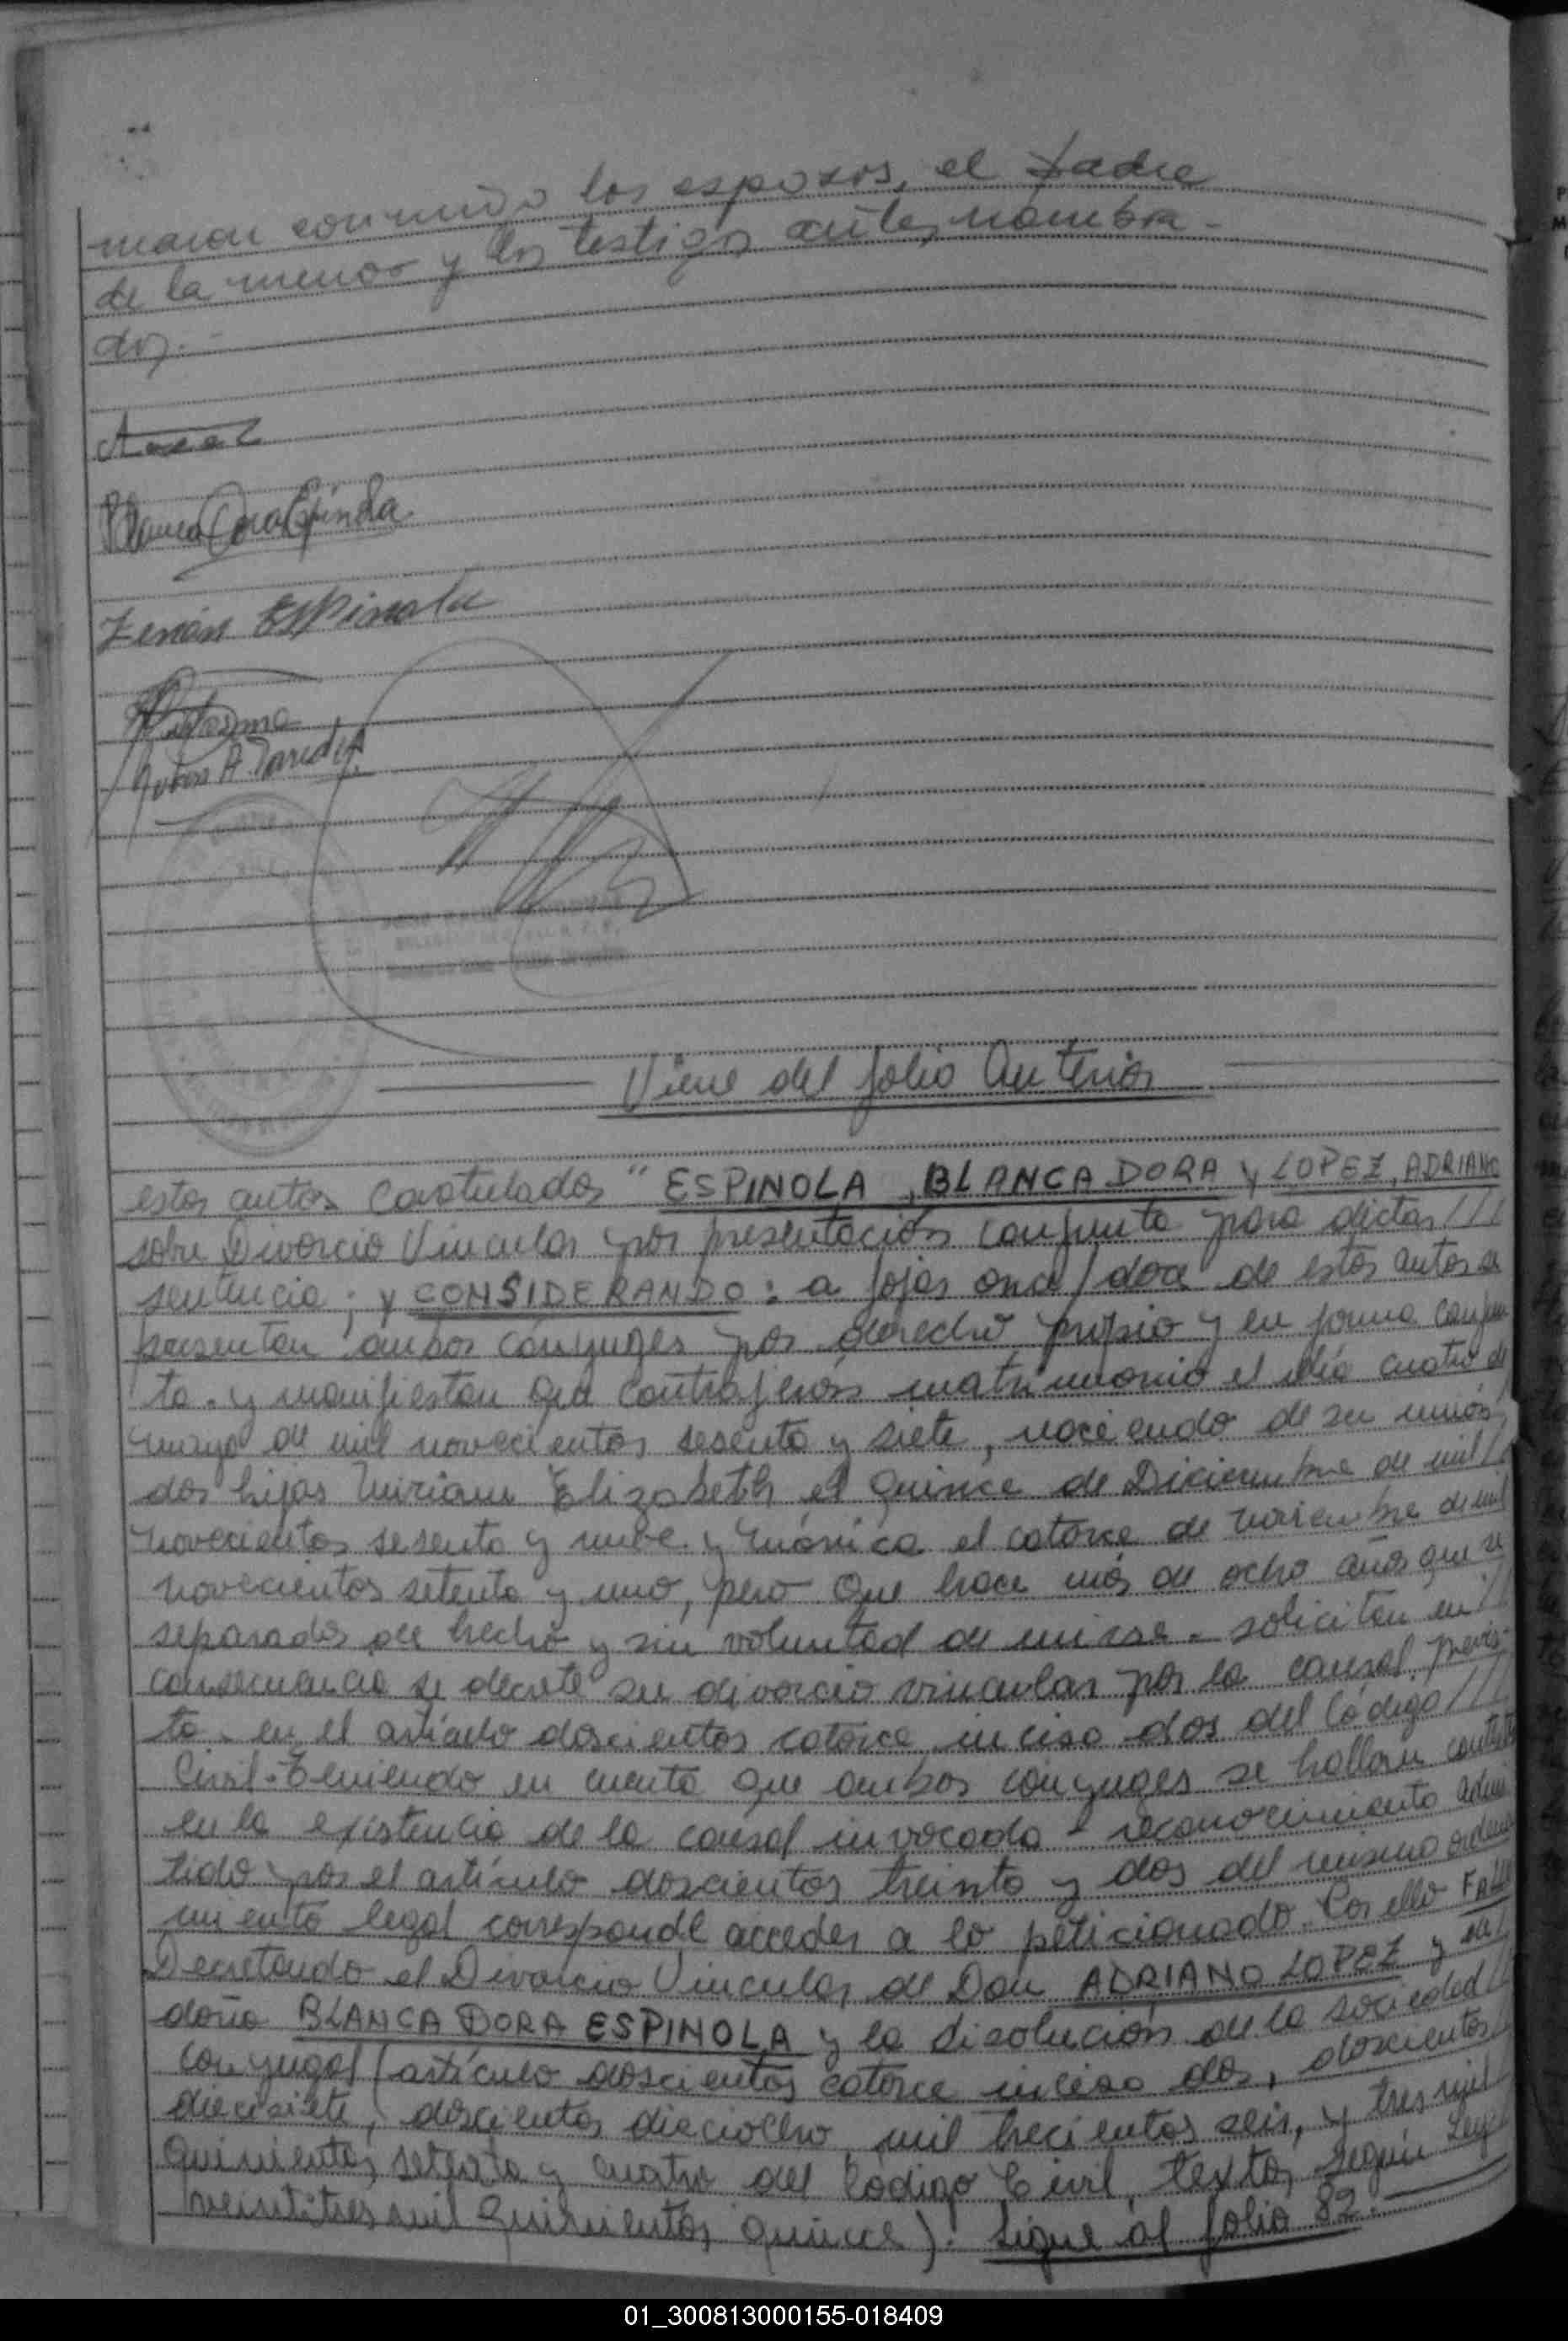 maron conmigo los esposos, el padre
de la menor y los testigos antes nombra-
dos.-
Blanca Dora Espinola
Zenón Espinola
Viene del folio Anterior
estos autos caratulados "ESPINOLA, BLANCA DORA y LOPEZ, ADRIANO
sobre Divorcio Vincular por presentación conjunta para dictar ///
sentencia; y CONSIDERANDO: a fojas once/doce de estos autos se
presentan ambos cónyuges por derecho propio y en forma conjun
ta. y manifiestan que contrajerón matrimonio el día cuatro de
mayo de mil novecientos sesenta y siete, naciendo de su unión
dos hijas Miriam Elizabeth el quince de Diciembre de mil //
novecientos sesenta y nueve y Mónica el catorce de noviembre de mil
novecientos setenta y uno, pero que hace más de ocho años que se
separados de hecho y sin voluntad de unirse - solicitan en //
consecuencia se decrete su divorcio vincular por la causal previs-
ta en el artículo doscientos catorce inciso dos del Código ///
Civil. Teniendo en cuenta que ambos conyuges se hallan contestes
en la existencia de la causal invocada - reconocimiento admi
tido por el artículo doscientos treinta y dos del mismo ordena
miento legal corresponde acceder a lo peticionado. Por ello FALLO
Decretando el Divorcio Vincular de Don ADRIANO LOPEZ y de /
doña BLANCA DORA ESPINOLA y la disolución de la sociedad //
conyugal (artículo doscientos catorce inciso dos, doscientos /
diecisiete, doscientos dieciocho, mil trecientos seis, y tres mil
quinientos setenta y cuatro del Código Civil, texto, según Ley
veintitres mil quinientos quince). Sigue al folio 82.-
01_300813000155-018409